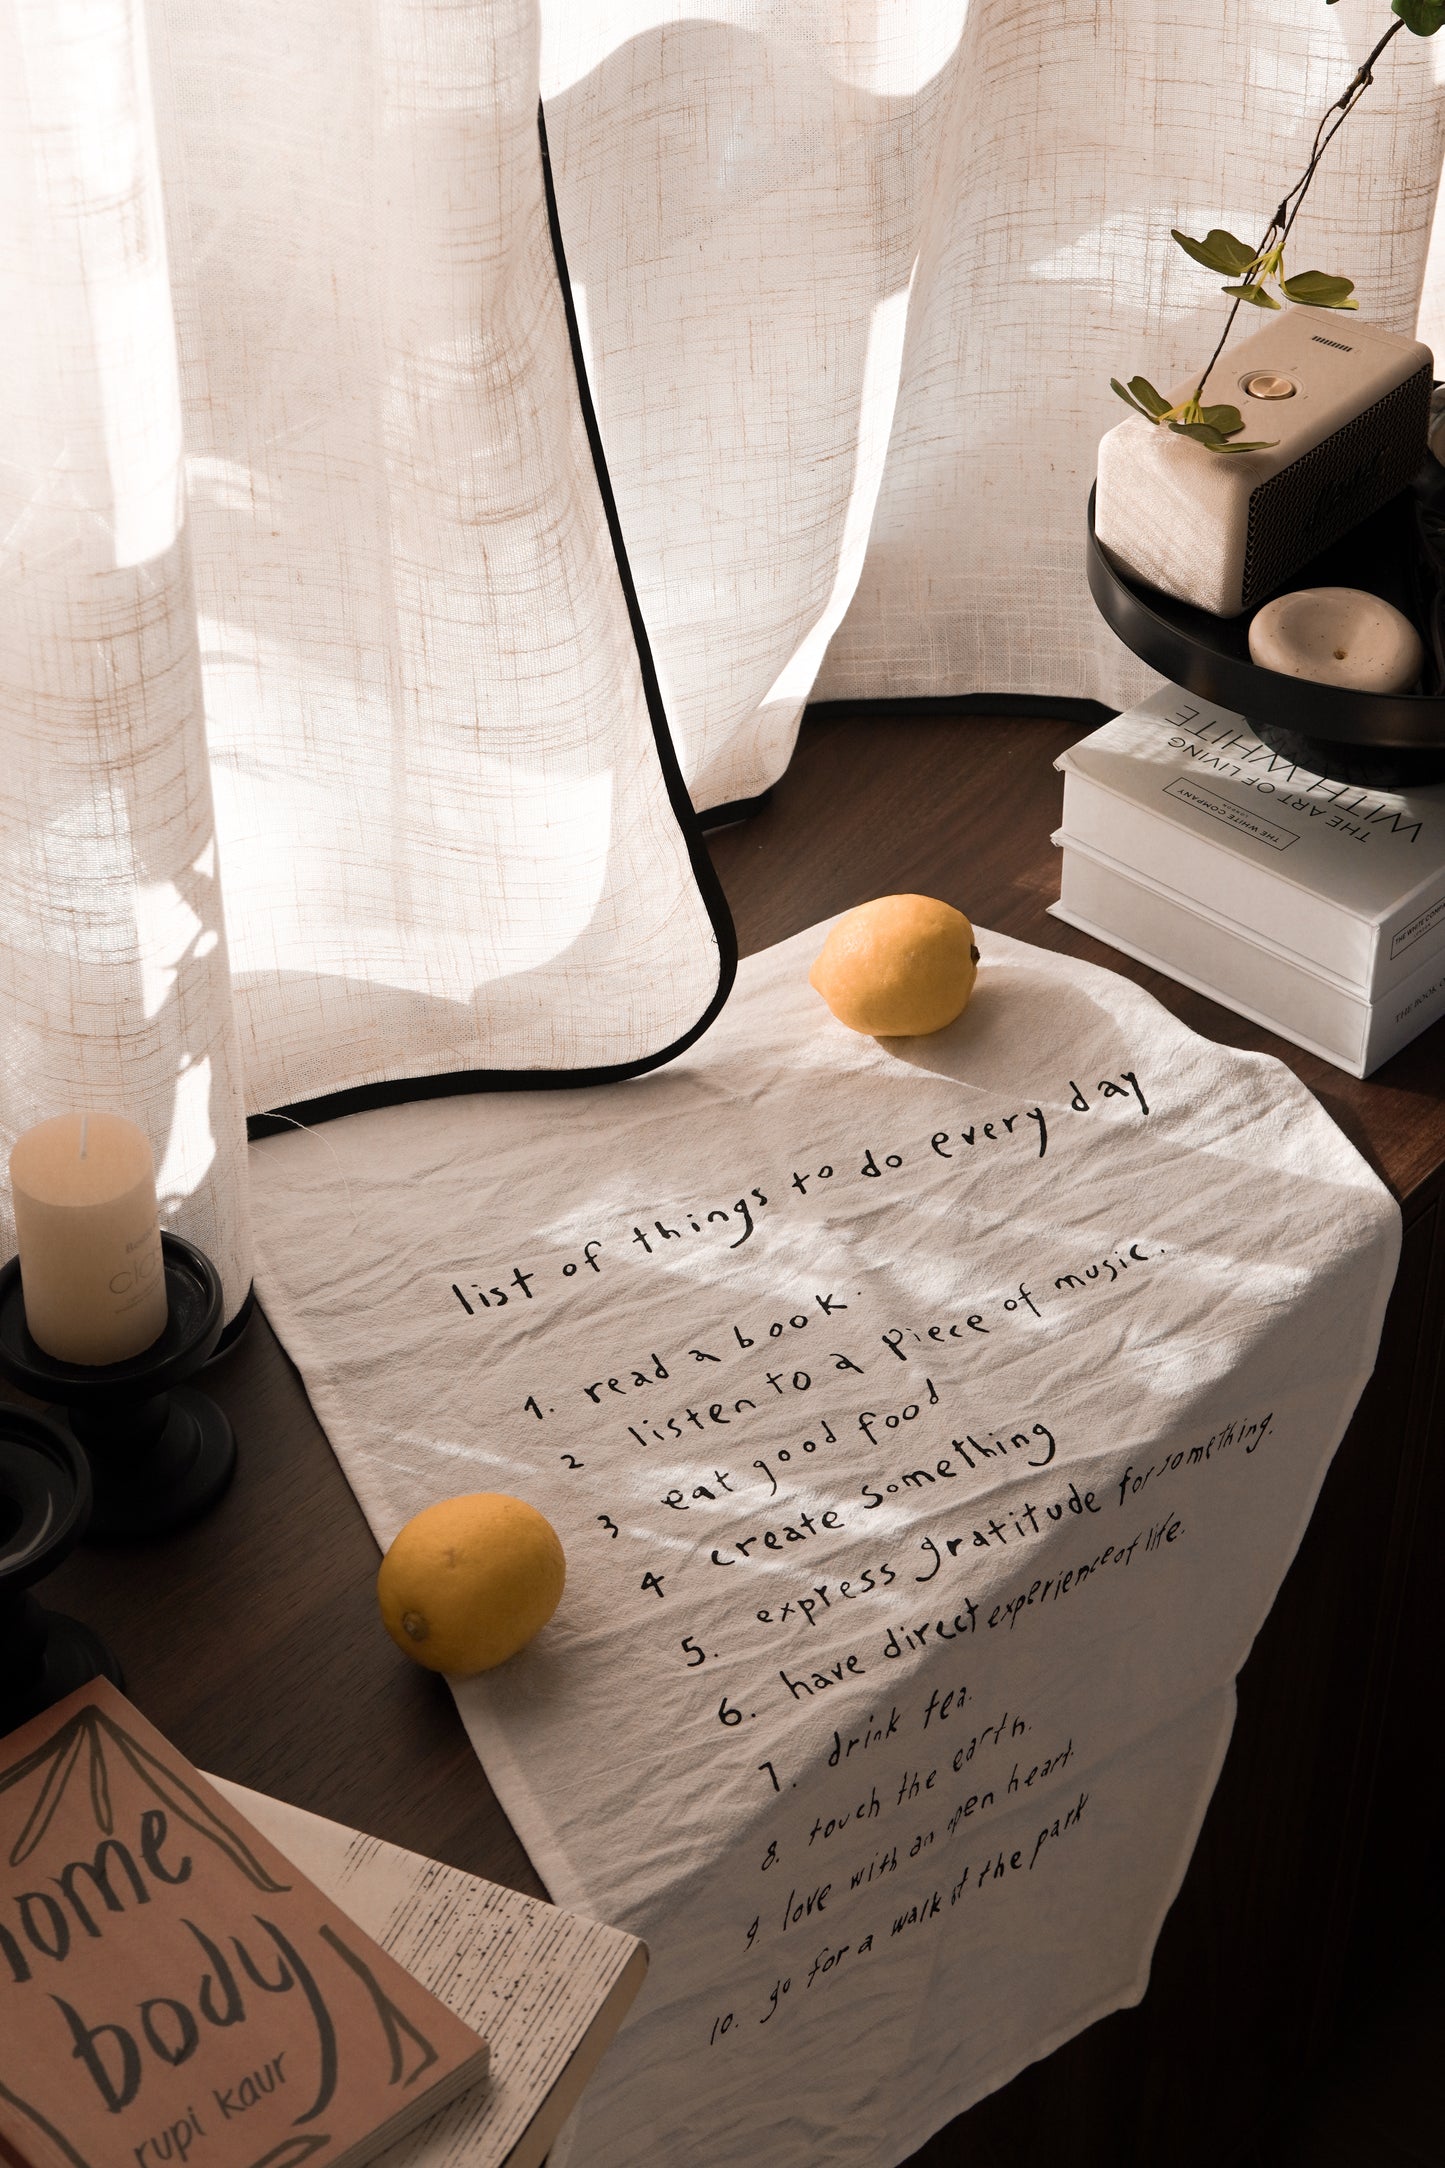 THE ART OF LIVING
WITH WHITE
THE WHITE COMPANY
LONDON
THE BOOK
list of things to do every day
1. read a book.
2 listen to a piece of music.
3 eat good food
4 create something
5. express gratitude for something.
6. have direct experience of life.
7. drink tea.
8. touch the earth.
9. love with an open heart.
10. go for a walk at the park
home
body
rupi kaur